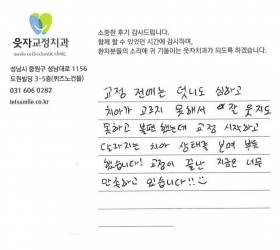 웃자교정치과
smile orthodontic clinic
성남시 중원구 성남대로 1156
도현빌딩 3-5층(퀴즈노건물)
031 606 0282
letssmile.co.kr
소중한 후기 감사드립니다.
함께 할 수 있었던 시간에 감사하며,
환자분들의 소리에 귀 기울이는 웃자치과가 되도록 하겠습니다.
교정 전에는 덧니도 심하고
치아가 고르지 못해서 잘 웃지도
못하고 불편했는데 교정 시작하고
달라지는 치아 상태를 보며 부듯
했습니다! 교정이 끝난 지금은 너무
만족하고 있습니다!!